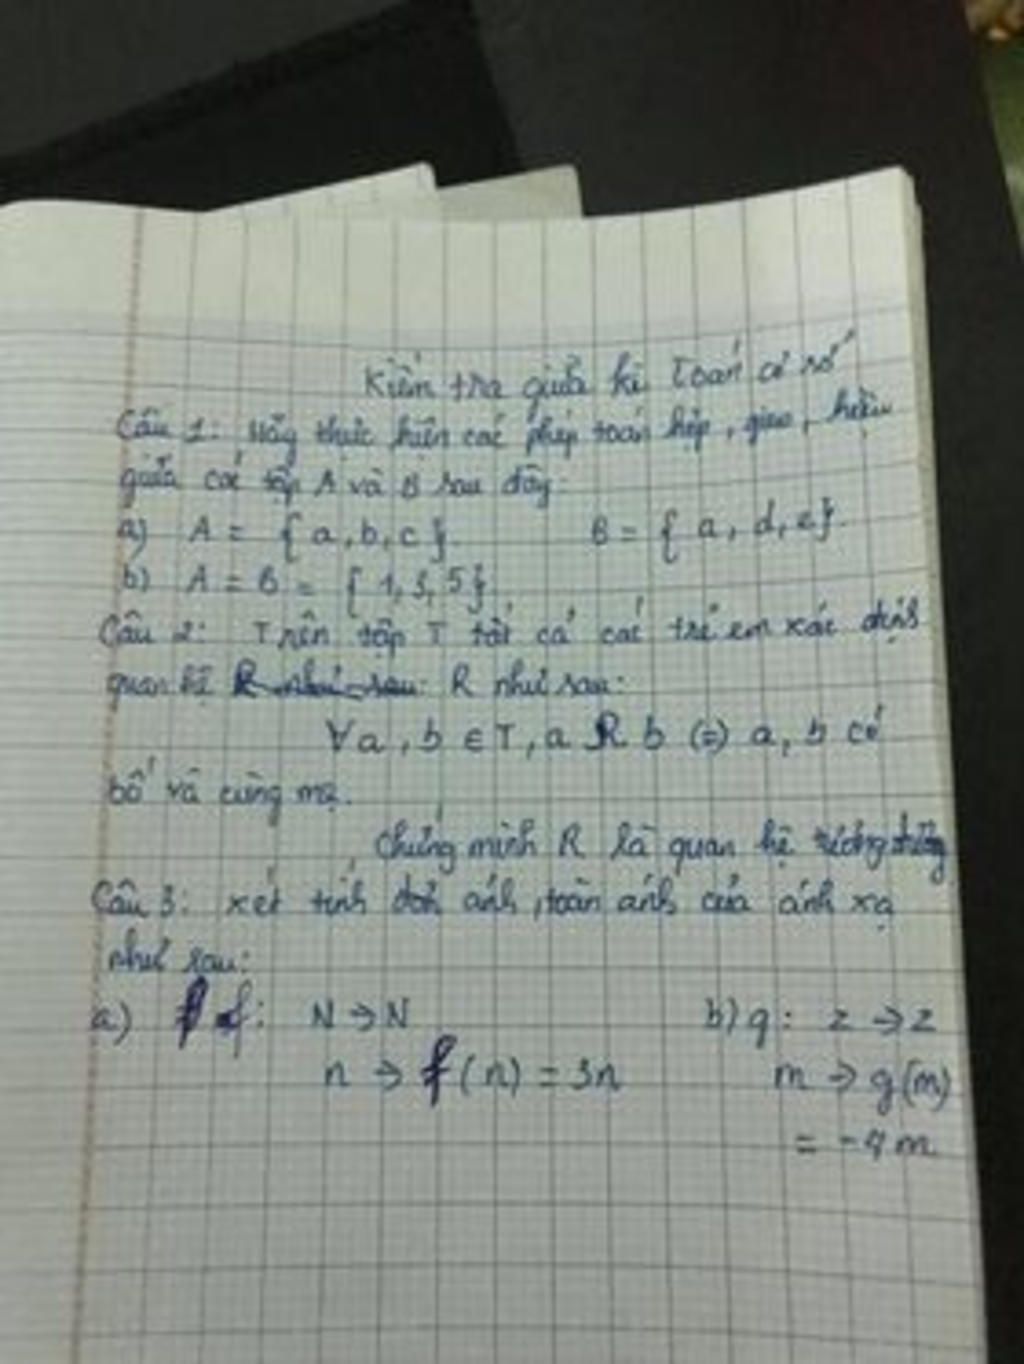 Kiểm tra giữa kì Toán cơ số
Câu 1: Hãy thực hiện các phép toán hợp, giao, hiệu
giữa các tập A và B sau đây:
a) A = { a, b, c } B = { a, d, e }.
b) A = B = { 1, 3, 5 }
Câu 2: Trên tập T tất cả các trẻ em xác định
quan hệ R như sau: R như sau:
∀a, b ∈ T, a R b (=) a, b có
bố và cùng mẹ.
Chứng minh R là quan hệ tương đương
Câu 3: xét tính đơn ánh, toàn ánh của ánh xạ
như sau:
a) f: N → N b) g: Z → Z
n → f(n) = 3n m → g(m)
= -4m